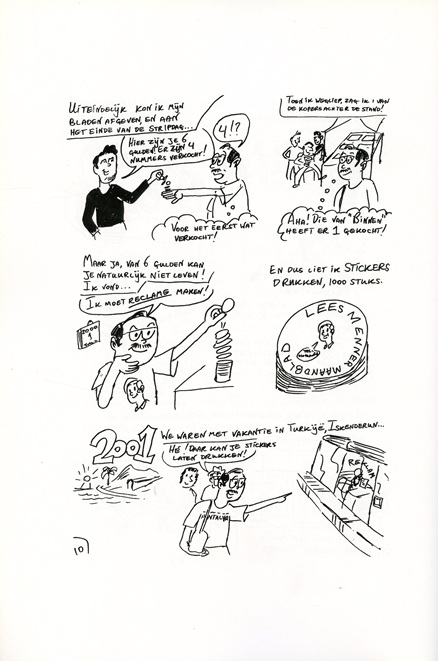 UITEINDELIJK KON IK MIJN
BLADEN AFGEVEN, EN AAN
HET EINDE VAN DE STRIPDAG...
HIER ZIJN JE 6
GULDEN! ER ZIJN 4
NUMMERS VERKOCHT!
4!?
VOOR HET EERST WAT
VERKOCHT!
TOEN IK WEGLIEP, ZAG IK 1 VAN
DE KOPERS ACHTER DE STAND!
AHA! DIE VAN "BINNEN"
HEEFT ER 1 GEKOCHT!
MAAR JA, VAN 6 GULDEN KAN
JE NATUURLIJK NIET LEVEN!
IK VOND...
IK MOET RECLAME MAKEN!
2000
1
EN DUS LIET IK STICKERS
DRUKKEN, 1000 STUKS.
LEES MENNER MAANDBLAD
2001
WE WAREN MET VAKANTIE IN TURKIJE, ISKENDERUN...
HE! DAAR KAN JE STICKERS
LATEN DRUKKEN!
10